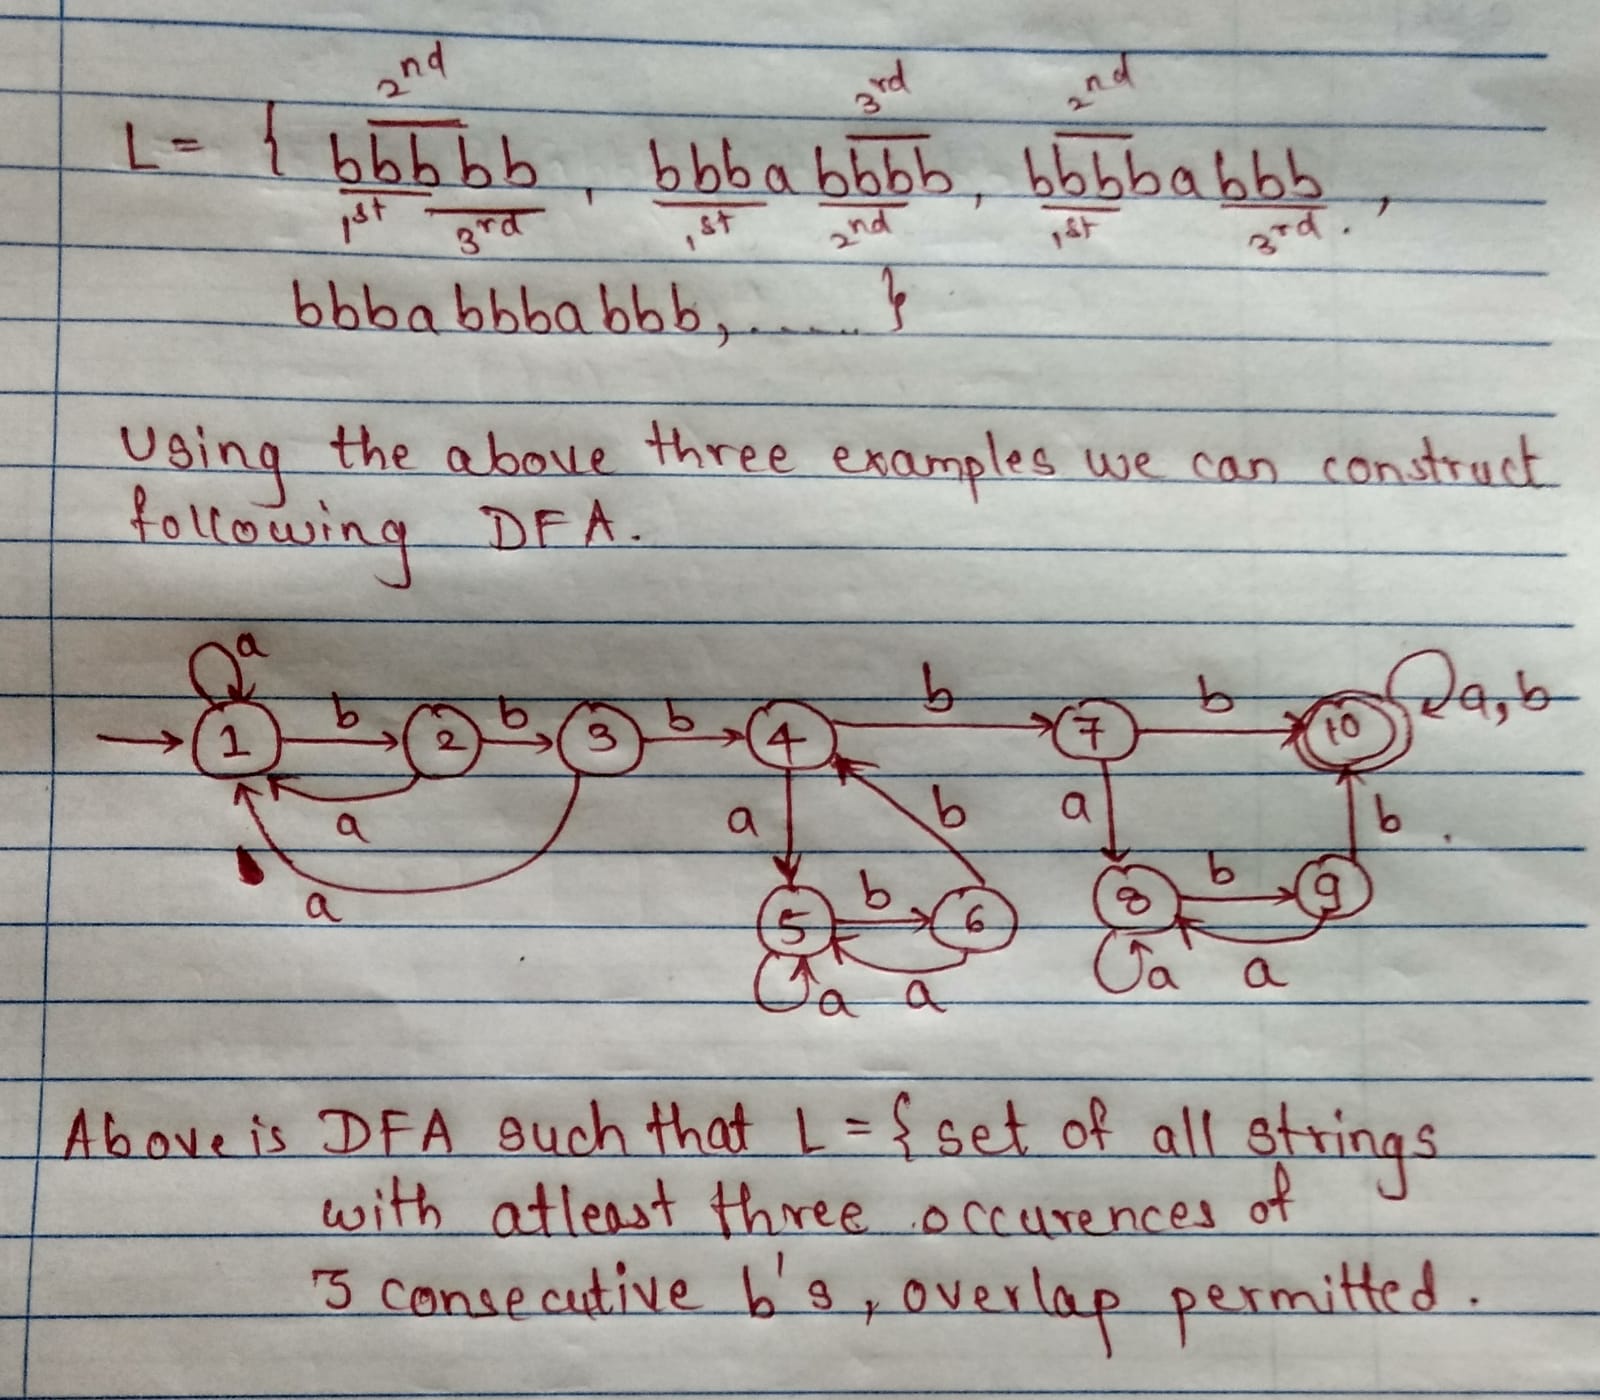 2nd 3rd 2nd
L = { bbbbb, bbbabbbb, bbbbabbb,
1st 3rd 1st 2nd 1st 3rd.
bbbabbbabbb, ...... }
Using the above three examples we can construct
following DFA.
a b b b b b a,b
1 2 3 4 7 10
a a b a b
a b b
5 6 8 9
a a a a
Above is DFA such that L = { set of all strings
with atleast three occurences of
3 consecutive b's, overlap permitted.